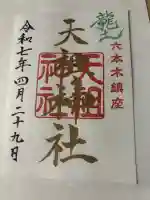 六本木鎮座
天祖神社
天祖神社
令和七年四月二十九日